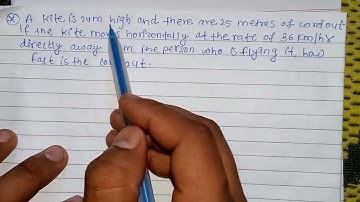 A kite is 24m high and there are 25 metres of cord out
If the kite moves horizontally at the rate of 36 km/hr
directly away from the person who is flying it, how
fast is the cord out.